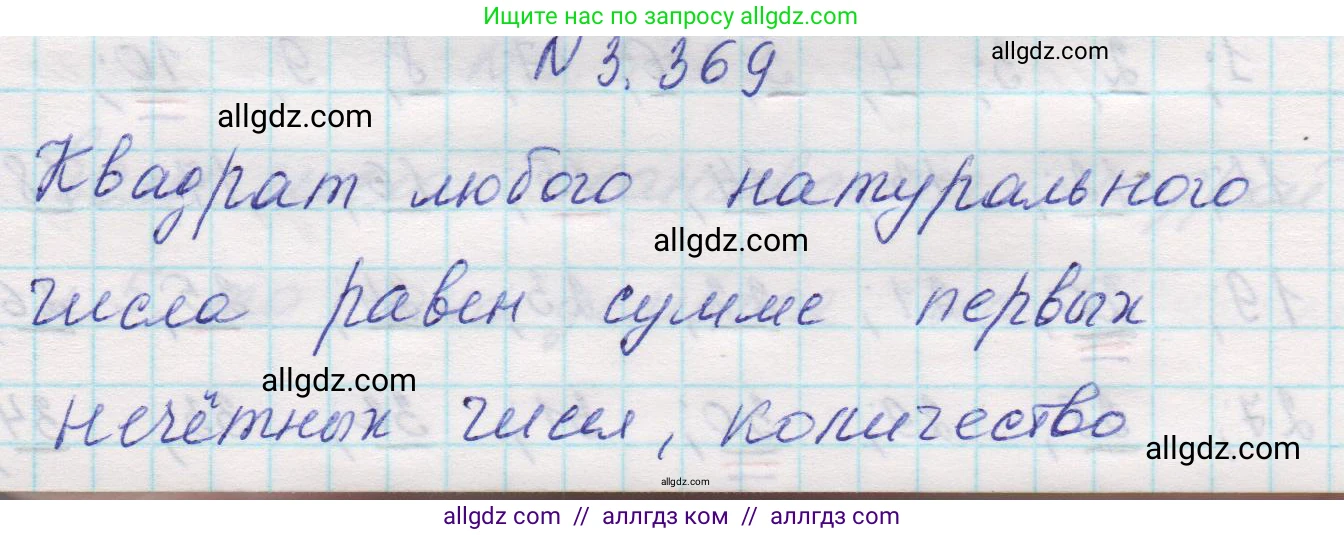 Ищите нас по запросу allgdz.com
N 3.369
allgdz.com
allgdz.com
Квадрат любого натурального
allgdz.com
числа равен сумме первых
allgdz.com
нечётных чисел, количество
allgdz.com
allgdz.com
allgdz com // аллгдз ком // аллгдз com